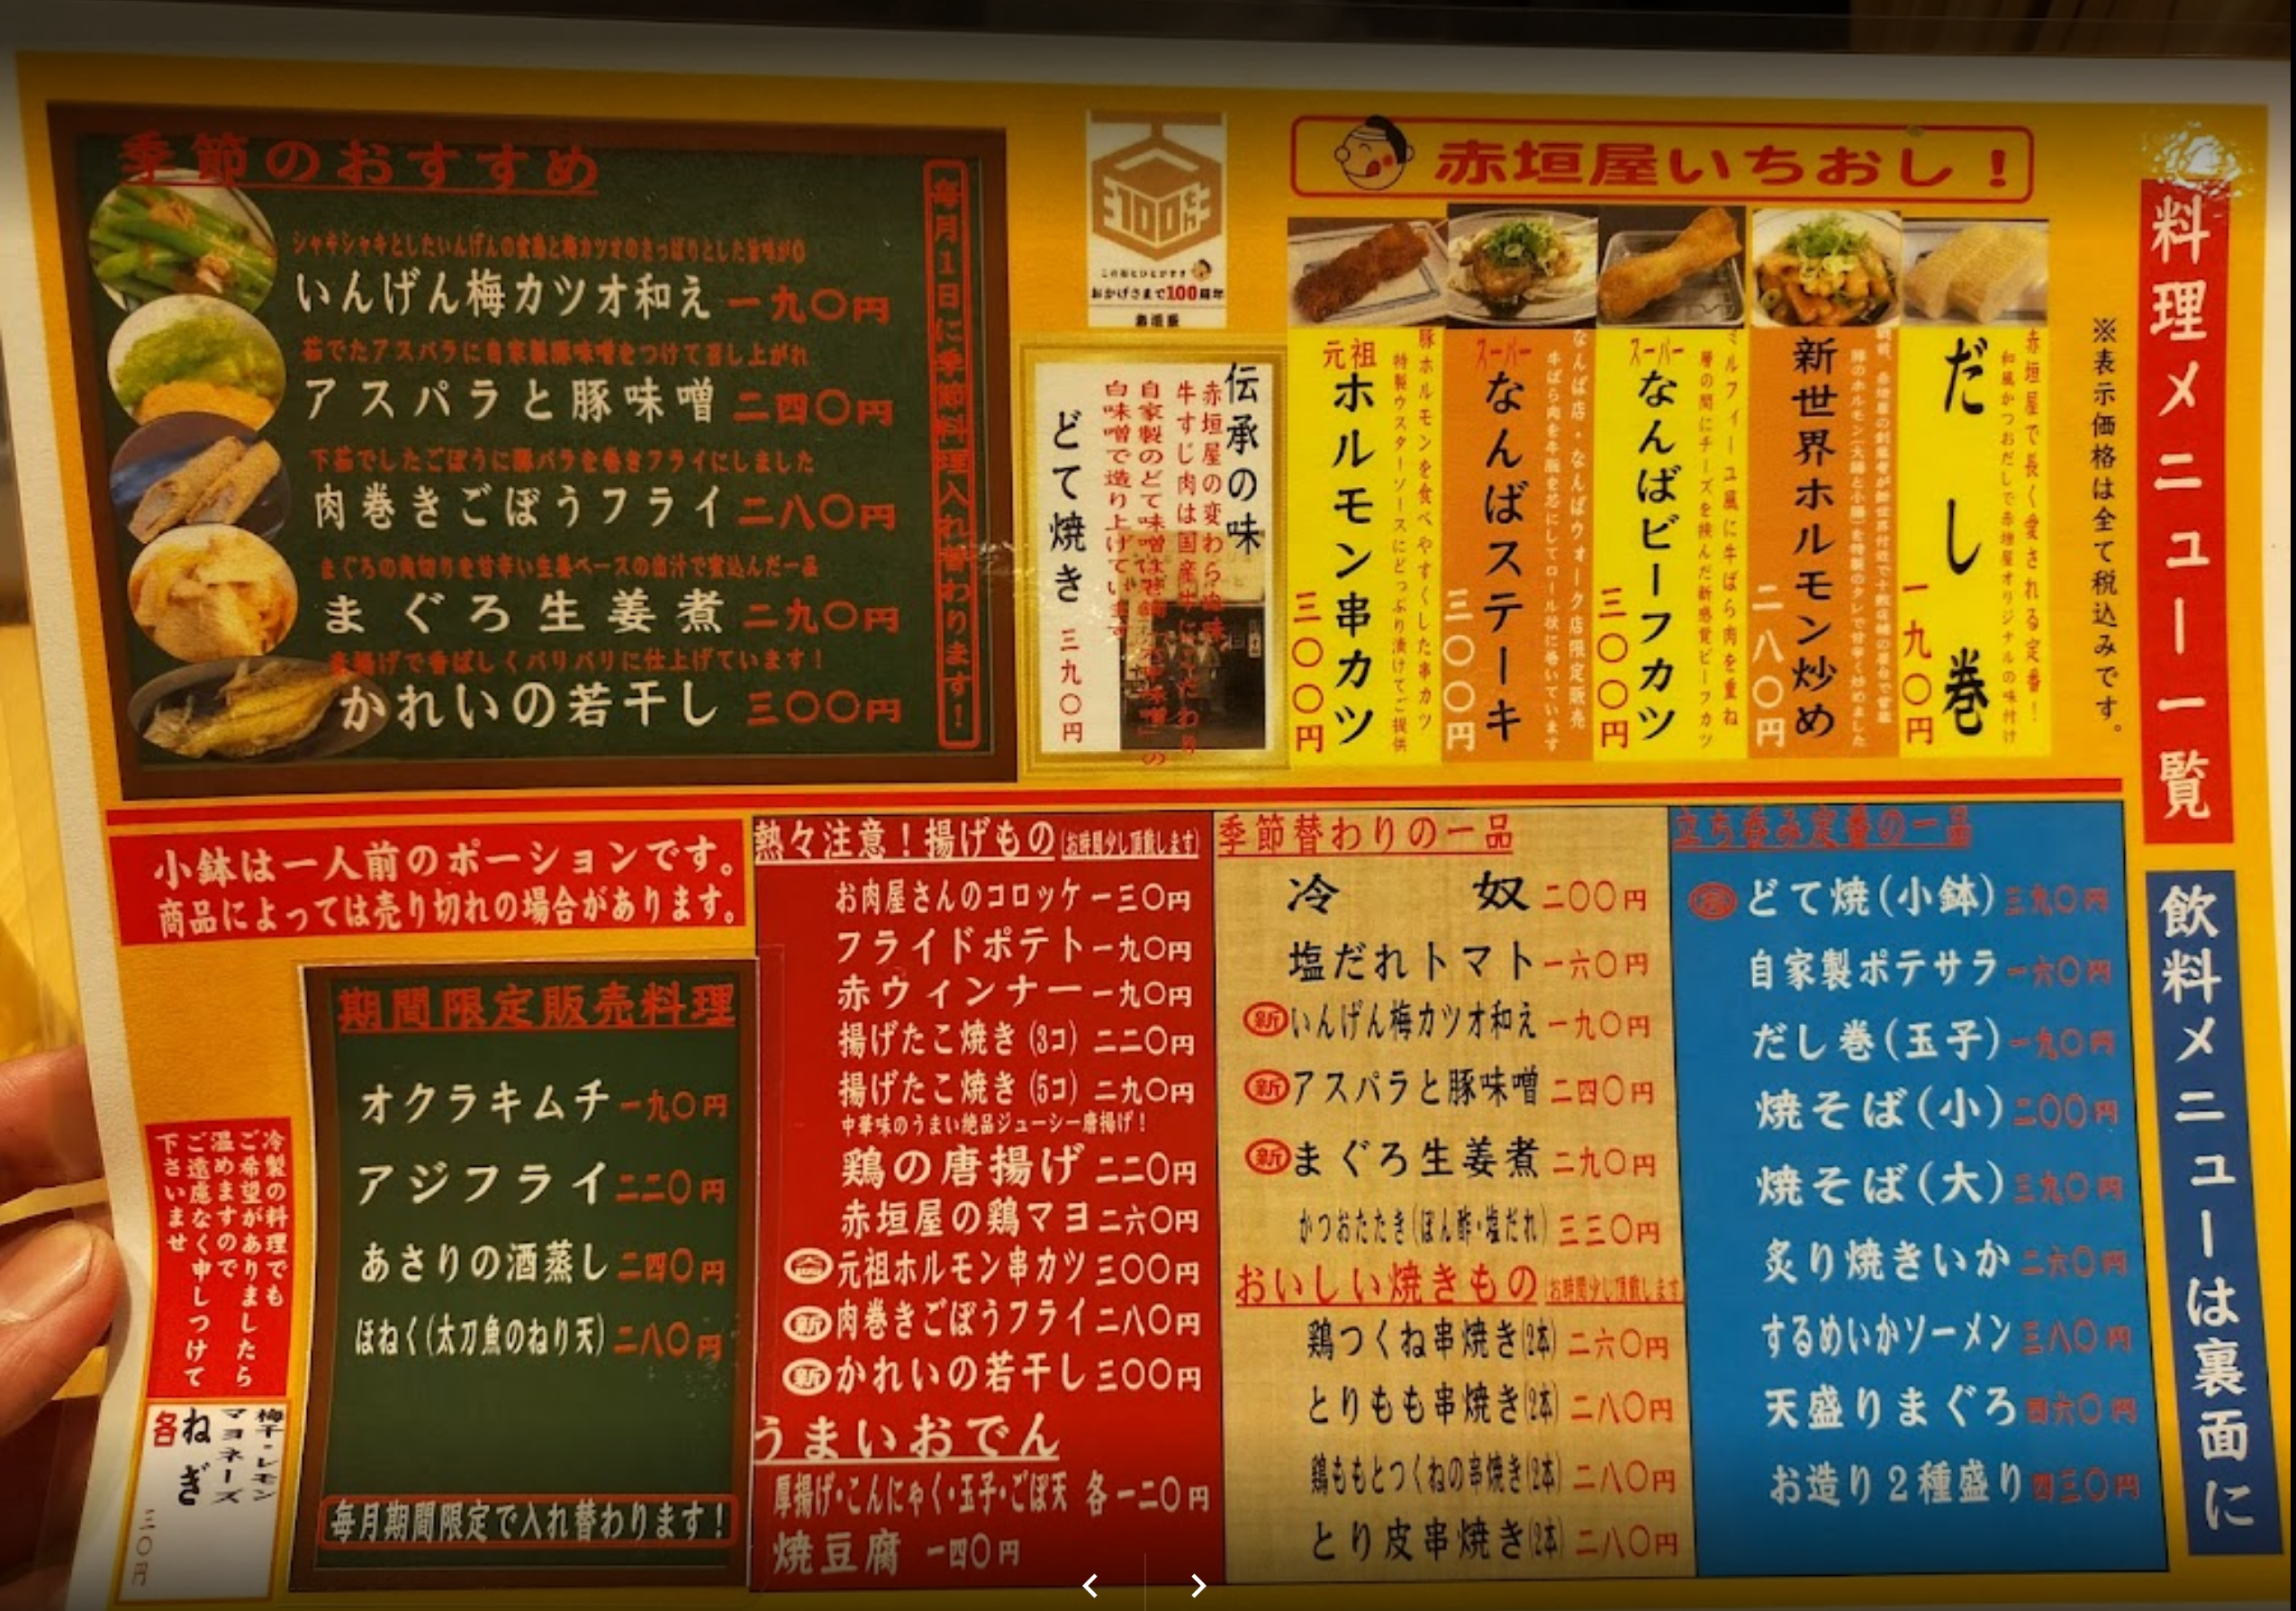 料理メニュー一覧
飲料メニューは裏面に
※表示価格は全て税込みです。
赤垣屋いちおし!
赤垣屋で長く愛される定番!
和風かつおだしで赤垣屋オリジナルの味付け
だし巻
一九〇円
新世界ホルモン炒め
二八〇円
ミルフィーユ風に牛ばら肉を重ね
層の間にチーズを挟んだ新感覚ビーフカツ
スーパー
なんばビーフカツ
三〇〇円
なんば店・なんばウォーク店限定販売
スーパー
なんばステーキ
三〇〇円
豚ホルモンを食べやすくした串カツ
特製ウスターソースにどっぷり漬けてご提供
元祖
ホルモン串カツ
三〇〇円
100th
おかげさまで100周年
赤垣屋
伝承の味
赤垣屋の変わらぬ味
牛すじ肉は国産牛にこだわり
自家製のどて味噌は
白味噌で造り上げています
どて焼き
三九〇円
季節のおすすめ
毎月1日に季節料理入れ替わります!
シャキシャキとしたいんげんの食感と梅カツオのさっぱりとした旨味が◎
いんげん梅カツオ和え 一九〇円
茹でたアスパラに自家製豚味噌をつけて召し上がれ
アスパラと豚味噌 二四〇円
下茹でしたごぼうに豚バラを巻きフライにしました
肉巻きごぼうフライ 二八〇円
まぐろの角切りを甘辛い生姜ベースの出汁で煮込んだ一品
まぐろ生姜煮 二九〇円
素揚げで香ばしくパリパリに仕上げています!
かれいの若干し 三〇〇円
立ち呑み定番の一品
どて焼(小鉢) 三九〇円
自家製ポテサラ 一六〇円
だし巻(玉子) 一九〇円
焼そば(小) 二〇〇円
焼そば(大) 三九〇円
炙り焼きいか 二六〇円
するめいかソーメン 三八〇円
天盛りまぐろ 四六〇円
お造り2種盛り 四三〇円
季節替わりの一品
冷奴 二〇〇円
塩だれトマト 一六〇円
新 いんげん梅カツオ和え 一九〇円
新 アスパラと豚味噌 二四〇円
新 まぐろ生姜煮 二九〇円
かつおたたき(ぽん酢・塩だれ) 三三〇円
おいしい焼きもの (お時間少し頂戴します)
鶏つくね串焼き(2本) 二六〇円
とりもも串焼き(2本) 二八〇円
鶏ももとつくねの串焼き(2本) 二八〇円
とり皮串焼き(2本) 二八〇円
熱々注意!揚げもの (お時間少し頂戴します)
お肉屋さんのコロッケ 一三〇円
フライドポテト 一九〇円
赤ウィンナー 一九〇円
揚げたこ焼き(3コ) 二二〇円
揚げたこ焼き(5コ) 二九〇円
中華味のうまい絶品ジューシー唐揚げ!
鶏の唐揚げ 二二〇円
赤垣屋の鶏マヨ 二六〇円
元祖ホルモン串カツ 三〇〇円
新 肉巻きごぼうフライ 二八〇円
新 かれいの若干し 三〇〇円
うまいおでん
厚揚げ・こんにゃく・玉子・ごぼ天 各一二〇円
焼豆腐 一四〇円
小鉢は一人前のポーションです。
商品によっては売り切れの場合があります。
期間限定販売料理
オクラキムチ 一九〇円
アジフライ 二二〇円
あさりの酒蒸し 二四〇円
ほねく(太刀魚のねり天) 二八〇円
毎月期間限定で入れ替わります!
冷製の料理でも
ご希望がありましたら
温めますので
ご遠慮なく申しつけて
下さいませ
梅干・レモン
マヨネーズ
ねぎ
各
三〇円